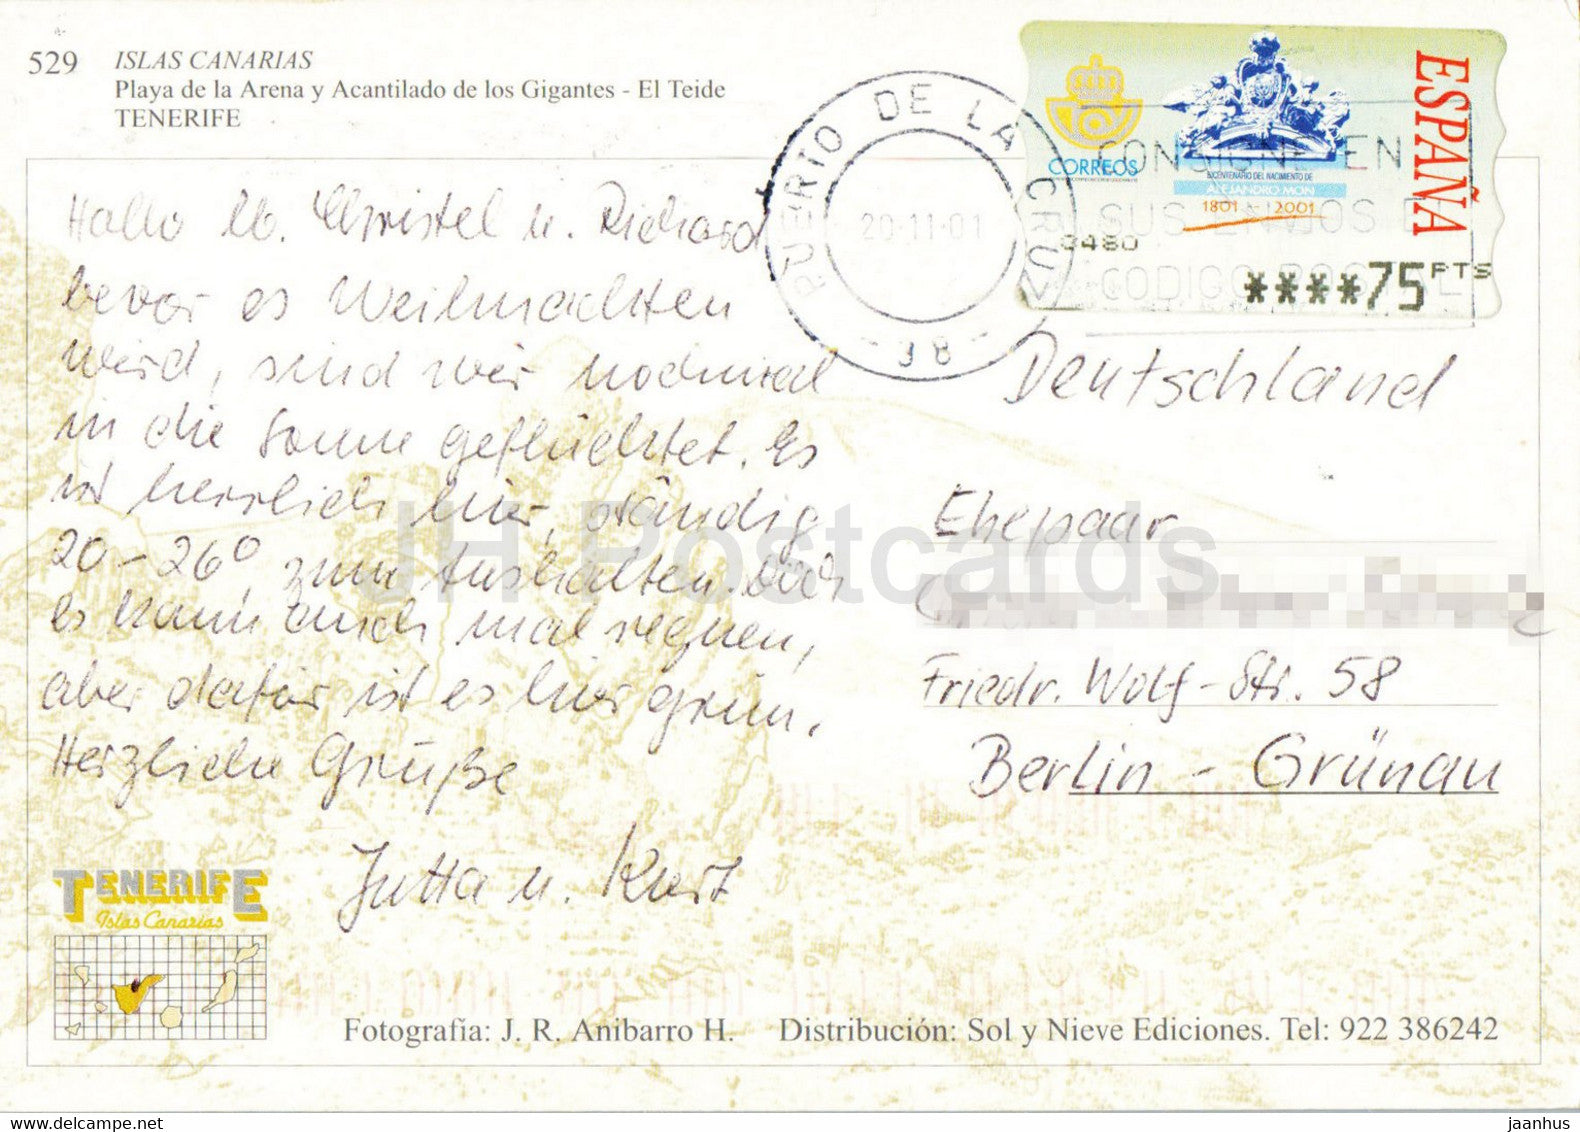 529 ISLAS CANARIAS
Playa de la Arena y Acantilado de los Gigantes - El Teide
TENERIFE
Hallo lb. Christel u. Richard
bevor es Weihnachten
wird, sind wir nochmal
in die Sonne geflüchtet. Es
ist herrlich hier, ständig
20-26° zum Aushalten. Doch
es kann auch mal regnen,
aber dafür ist es hier grün.
Herzliche Grüße
Jutta u. Kurt
PUERTO DE LA CRUZ
20-11-01
38
CORREOS
ESPAÑA
BICENTENARIO DEL NACIMIENTO DE
ALEJANDRO MON
1801 2001
CONSIGNE EN
SUS ENVIOS EL
CODIGO POSTAL
0480
****75 PTS
Deutschland
Ehepaar
Friedr. Wolf-Str. 58
Berlin - Grünau
TENERIFE
Islas Canarias
Fotografía: J. R. Anibarro H. Distribución: Sol y Nieve Ediciones. Tel: 922 386242
JH Postcards
www.delcampe.net
jaanhus